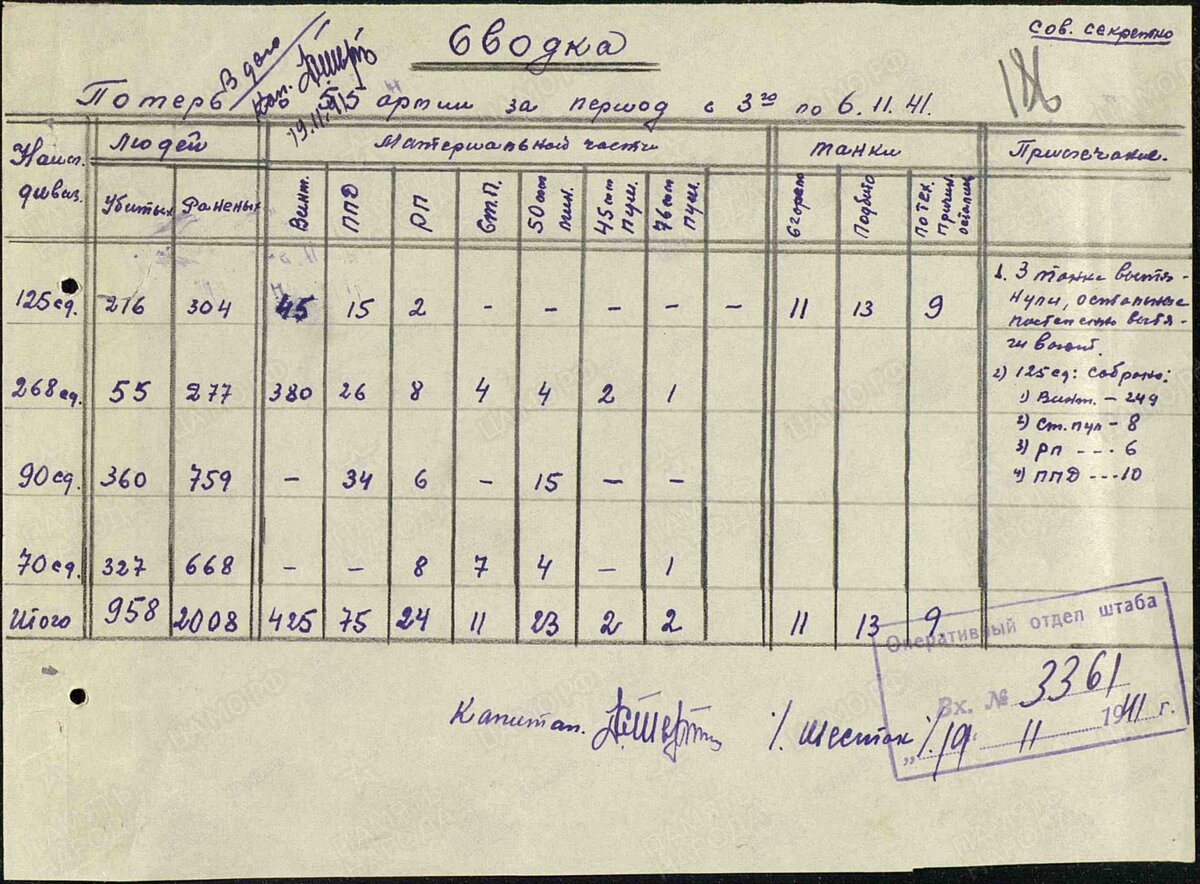 Сов. секретно
Сводка
В дело
Кап.
19.11.41
Потерь 55 армии за период с 3го по 6.11.41.
Наим. дивиз. Людей Материальной части Танки Примечание.
Убитых Раненых Винт. ППД РП Ст.П. 50mm мин. 45mm пуш. 76mm пуш. Сгорел Подбито По тех. причин.
125 сд. 216 304 45 15 2 - - - - - 11 13 9
268 сд. 55 277 380 26 8 4 4 2 1
90 сд. 360 759 - 34 6 - 15 - -
70 сд. 327 668 - - 8 7 4 - 1
Итого 958 2008 425 75 24 11 23 2 2 11 13 9
1. 3 танка вытя-
нули, остальные
постепенно вытя-
гивают.
2) 125 сд: Собрано:
1) Винт. - 249
2) Ст. пул - 8
3) РП - - - 6
4) ППД - - - 10
Оперативный отдел штаба
Вх. № 3361
„19 11 1941 г.
Капитан. /Шесток/